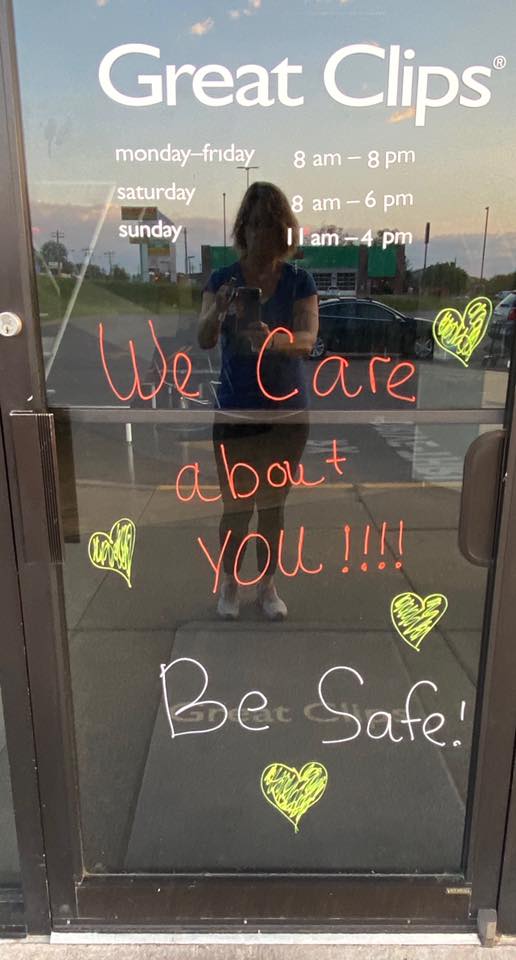 Great Clips®
monday–friday 8 am – 8 pm
saturday 8 am – 6 pm
sunday 11 am – 4 pm
We Care
about
YOU!!!!
Be Safe!
Great Clips